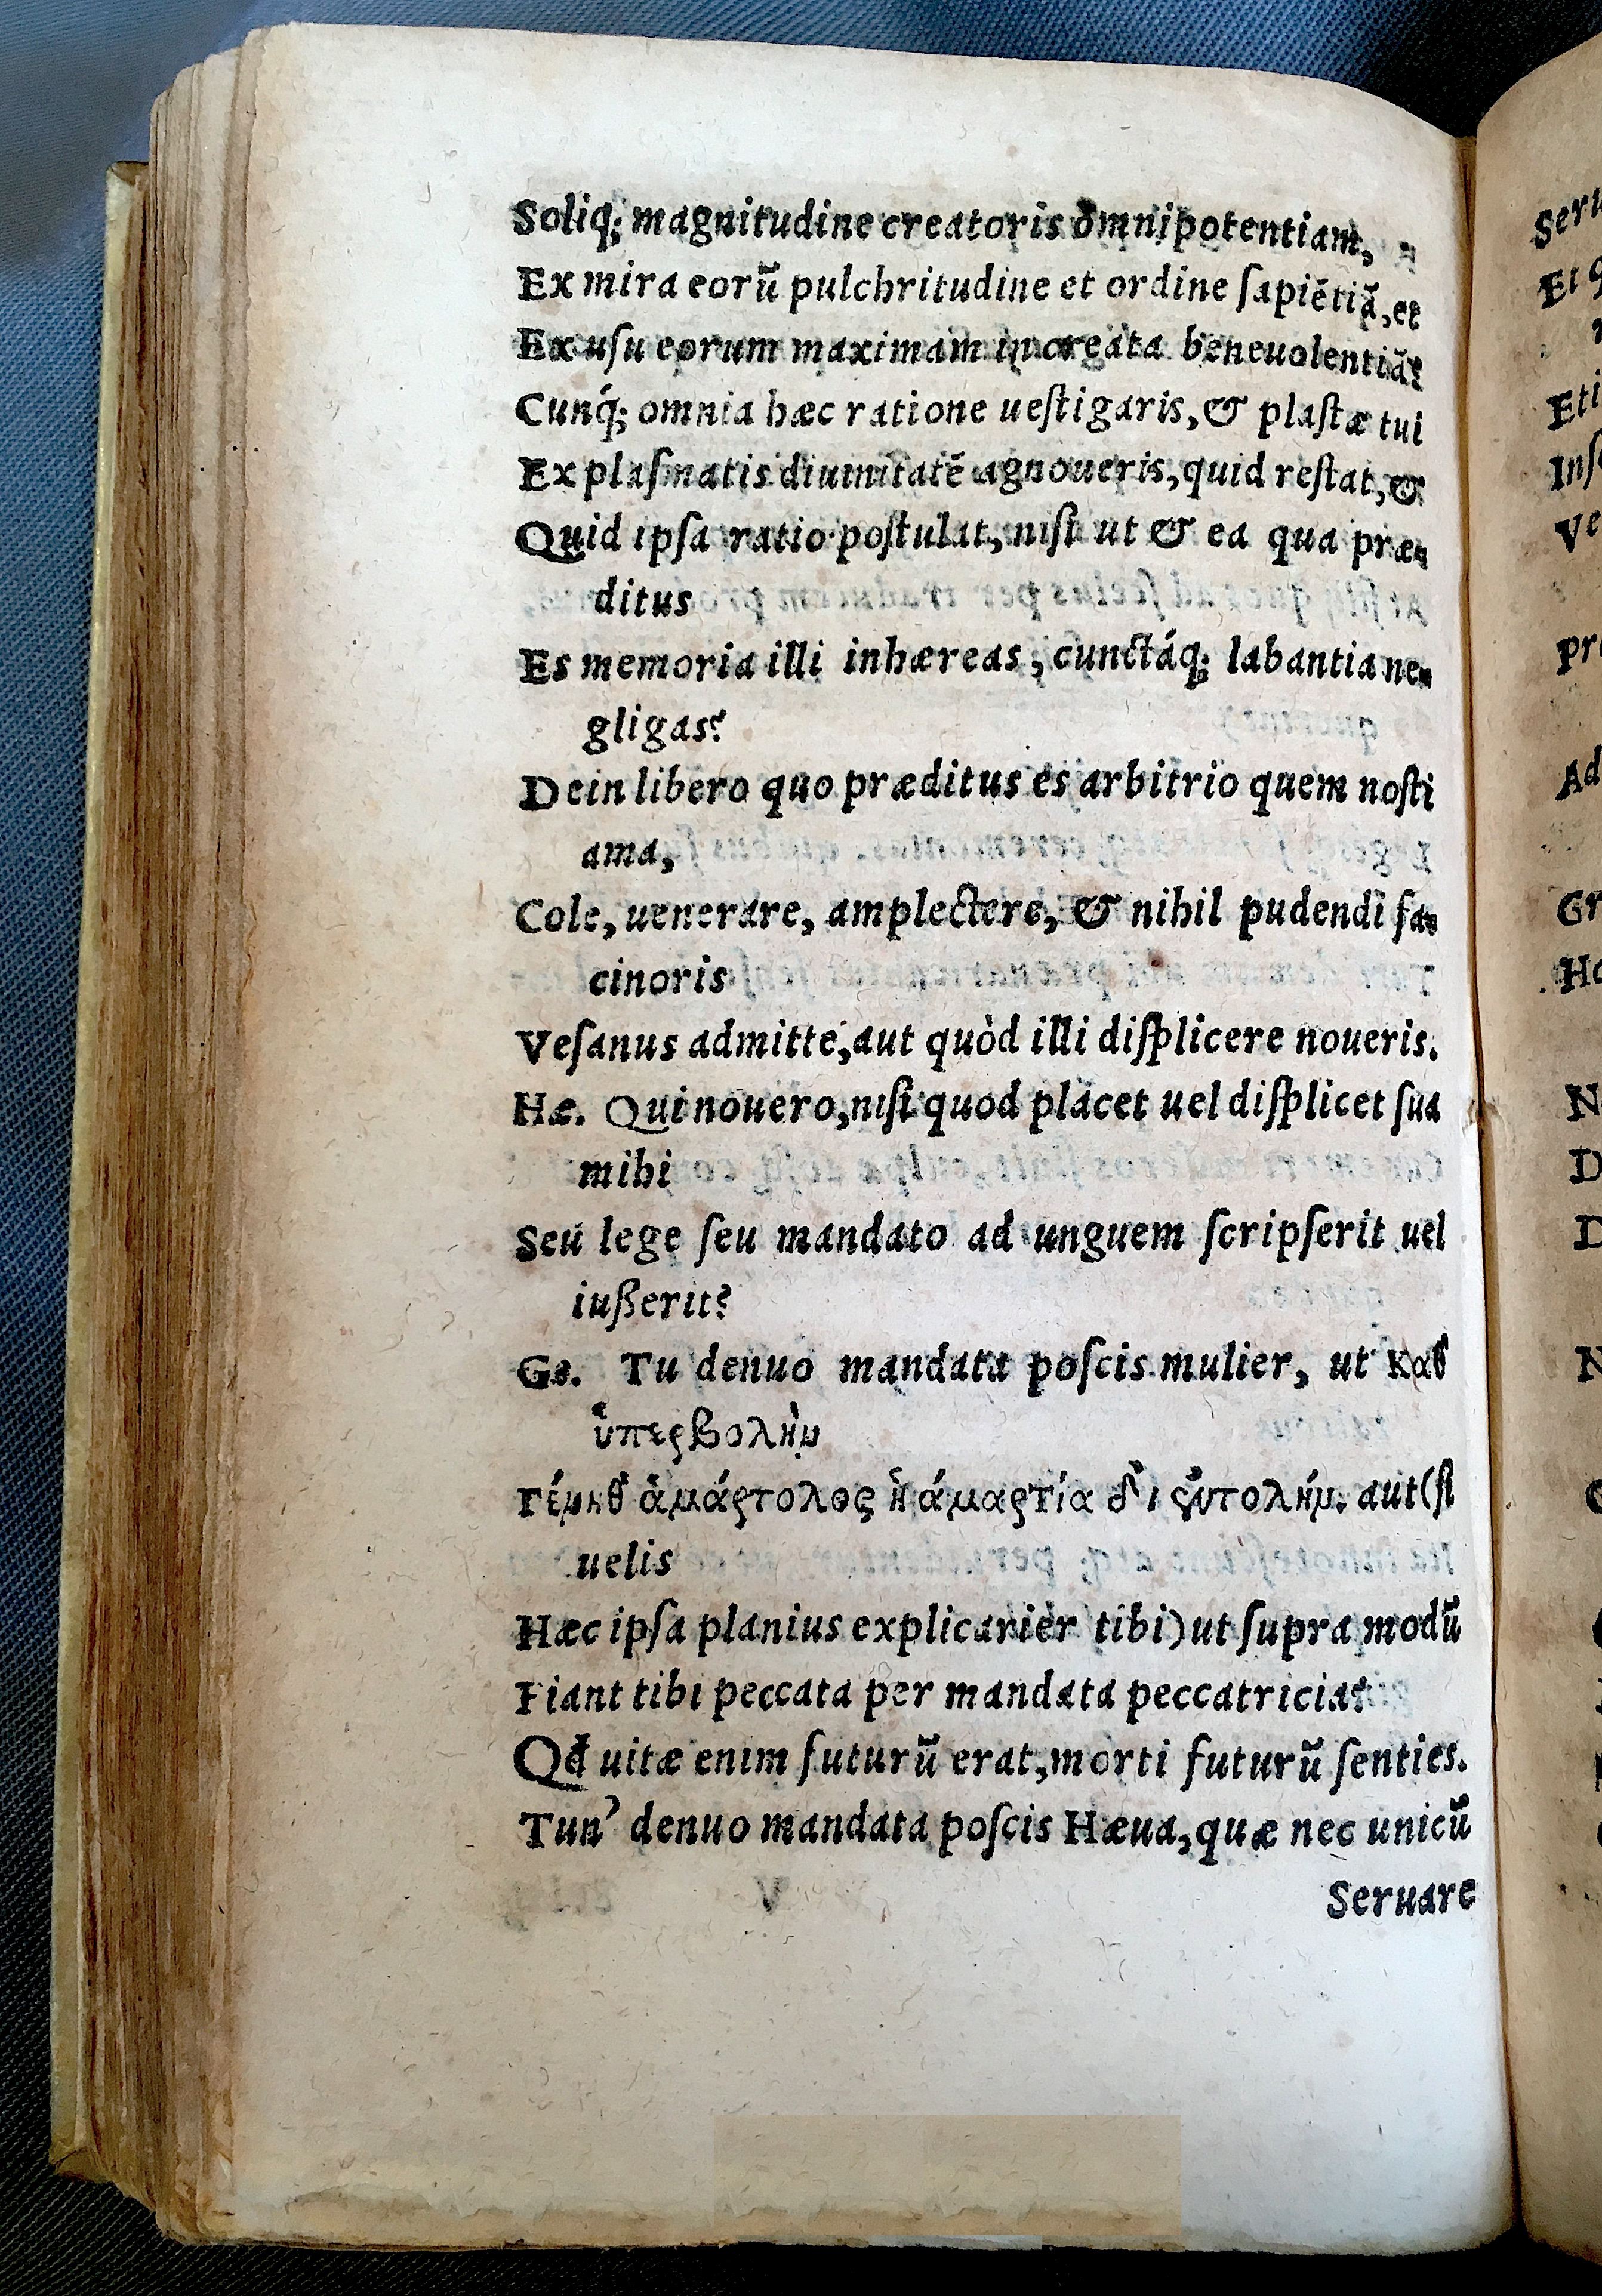 Soliq; magnitudine creatoris omnipotentiam,
Ex mira eorū pulchritudine et ordine ſapiētiā, et
Ex uſu eorum maximam in creata beneuolentiā?
Cunq́; omnia hæc ratione ueſtigaris, & plaſtæ tui
Ex plaſmatis diuinitatē agnoueris, quid reſtat, &
Quid ipſa ratio poſtulat, niſi ut & ea qua præ-
ditus
Es memoria illi inhæreas, cunctáq; labantia ne-
gligas?
Dein libero quo præditus es arbitrio quem noſti
ama,
Cole, uenerare, amplectere, & nihil pudendi fa-
cinoris
Veſanus admitte, aut quòd illi diſplicere noueris.
Hæ. Qui nouero, niſi quod placet uel diſplicet ſua
mihi
Seu lege ſeu mandato ad unguem ſcripſerit uel
iußerit?
Ge. Tu denuo mandata poſcis mulier, ut καθ
ὑπερβολὴν
Γένηθ ἁμάρτολος ἡ ἁμαρτία δὶ ἐντολήν. aut (ſi
uelis
Hæc ipſa planius explicarier tibi) ut ſupra modū
Fiant tibi peccata per mandata peccatricia?
Qđ uitæ enim futurū erat, morti futurū ſenties.
Tun' denuo mandata poſcis Hæua, quæ nec unicū
Seruare